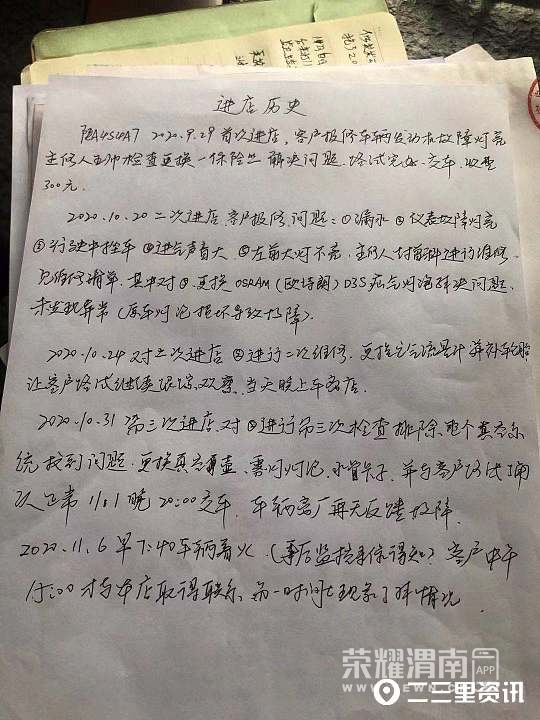 进店历史
陕A4S4A7 2020.9.29首次进店,客户报修车辆发动机故障灯亮
主修人 检查更换一保险丝 解决问题.路试完好.交车.收费
300元.
2020.10.20二次进店.客户报修.问题:①漏水②仪表故障灯亮
③行驶中拴车④进气声音大⑤左前大灯不亮.主修人 进行维修.
见维修清单.其中对⑤.更换OSRAM(欧特朗)D3S疝气灯泡解决问题.
未发现异常(原车灯泡损坏导致故障).
2020.10.24对二次进店②进行二次维修.更换空气流量计 补轮胎
让客户路试继续跟踪观察.当天晚上车离店.
2020.10.31第三次进店.对②进行第三次检查.排除.整个真空系
统找到问题.更换真空 壶、雾灯灯泡、水管卡子、并与客户路试
次正常 11.1晚20:00交车.车辆离厂再无反馈故障.
2020.11.6早7:40车辆着火(事后监控录像得知)客户中午
15:00才与本店取得联系.第一时间去现场了解情况.
荣耀渭南 APP
二三里资讯